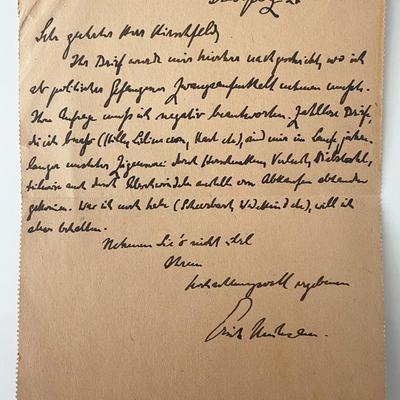 Sehr geehrter Herr Hirschfeld,
Ihr Brief wurde mir hierher nachgeschickt, wo ich
als politischer Gefangener Zwangsaufenthalt nehmen musste.
Ihre Anfrage muss ich negativ beantworten. Zahllose Briefe,
die ich besass (Hille, Liliencron, Hart etc), sind mir im Laufe jahre-
langer unsteter durch Verlust, Diebstahl,
teilweise auch durch
gekommen. Was ich noch habe (Scheerbart, Wedekind etc), will ich
aber behalten.
Nehmen Sie's nicht übel
Ihrem
hochachtungsvoll ergebenen
Erich Mühsam.